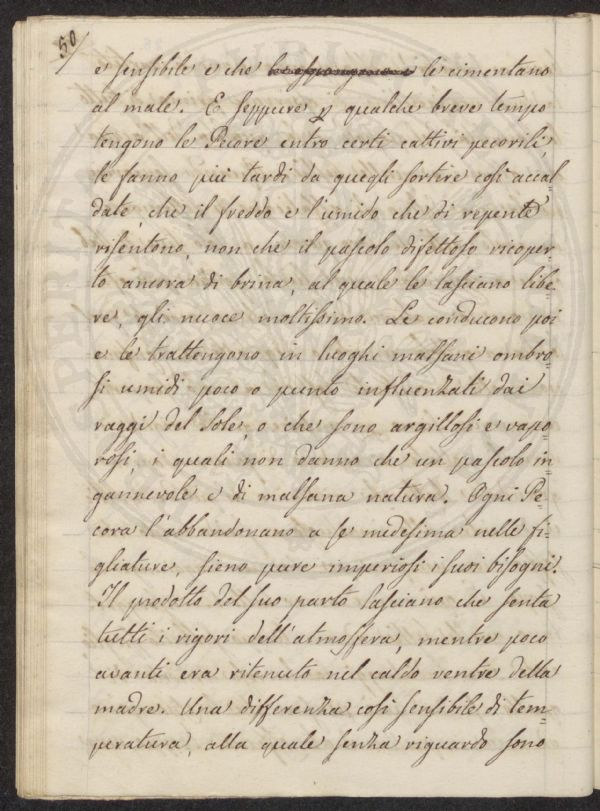 50/
e sensibile e che le cimentano
al male. E seppure p qualche breve tempo
tengono le Pecore entro certi cattivi pecorili,
le fanno più tardi da quegli sortire così accal=
date, che il freddo e l'umido che di repente
risentono, non che il pascolo difettoso ricoper=
to ancora di brina, al quale le lasciano libe=
re, gli nuoce moltissimo. Le conducono poi
e le trattengono in luoghi malsani ombro=
si umidi poco o punto influenzati dai
raggi del Sole, o che sono argillosi e vapo=
rosi, i quali non danno che un pascolo in=
gannevole e di malsana natura. Ogni Pe=
cora l'abbandonano a se medesima nelle fi=
gliature, sieno pure imperiosi i suoi bisogni.
Il prodotto del suo parto lasciano che senta
tutti i rigori dell'atmosfera, mentre poco
avanti era ritenuto nel caldo ventre della
madre. Una differenza così sensibile di tem=
peratura, alla quale senza riguardo sono